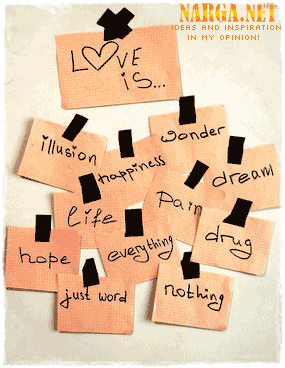 NARGA.NET
IDEAS AND INSPIRATION
IN MY OPINION!
LOVE
is...
wonder
illusion
happiness
dream
life
Pain
drug
hope
everything
just word
nothing